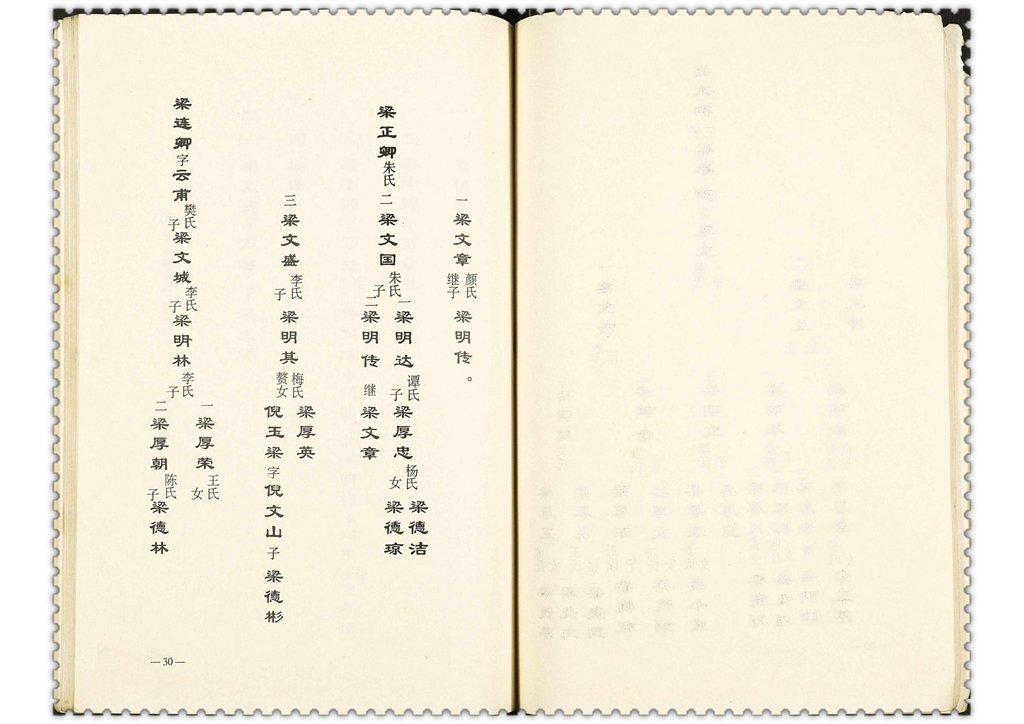 一梁文章颜氏继子梁明传。
梁正卿朱氏二梁文国朱氏子一梁明达谭氏子梁厚忠杨氏女梁德洁
梁德琼
二梁明传继梁文章
三梁文盛李氏子梁明其梅氏赘女梁厚英
倪玉梁字倪文山子梁德彬
梁连卿字云甫樊氏子梁文城李氏子梁明林李氏子一梁厚荣王氏女
二梁厚朝陈氏子梁德林
—30—